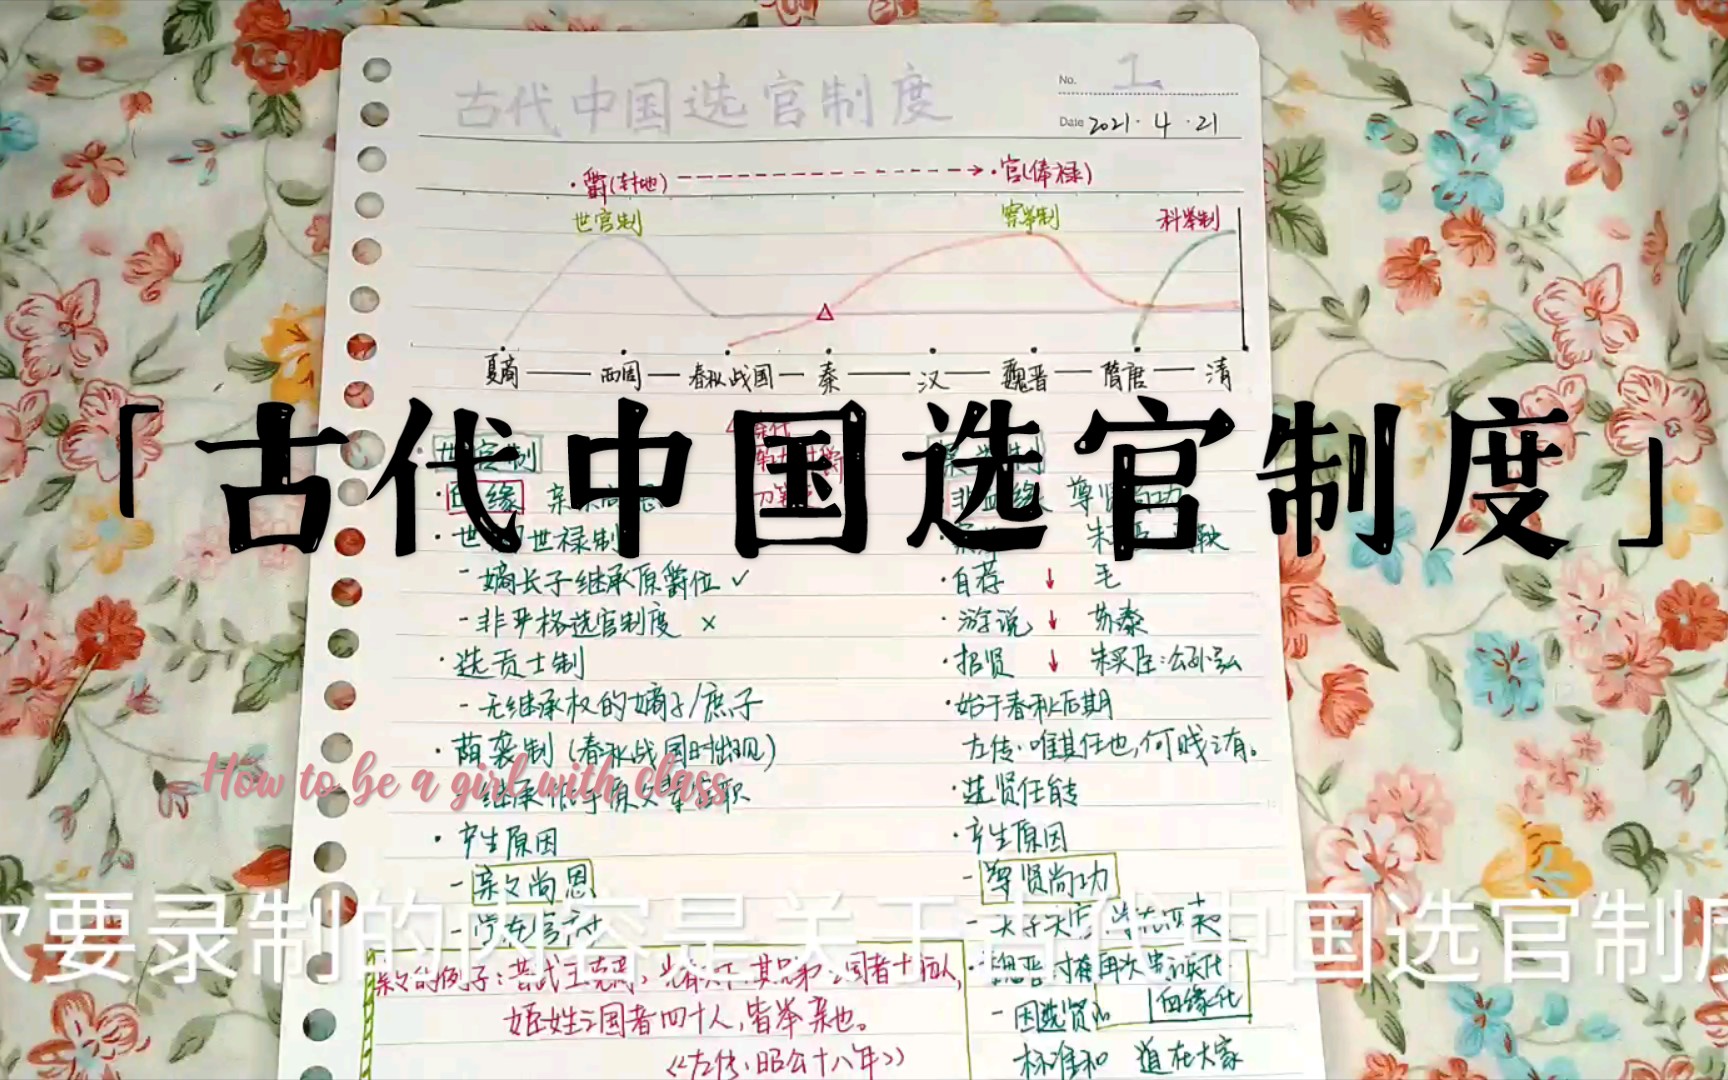 古代中国选官制度
No. 1
Date 2021·4·21
·爵(封地) ·官(俸禄)
世官制 察举制 科举制
夏商 西周 春秋战国 秦 汉 魏晋 隋唐 清
「古代中国选官制度」
世官制
·血缘
尊贤尚功
·世 世禄制
-嫡长子继承原爵位 ✓
·自荐 ↓ 毛
-非严格选官制度 ×
·游说 ↓ 苏秦
·选贡士制
·招贤 ↓ 朱买臣;公孙弘
-无继承权的嫡子/庶子
·始于春秋后期
·荫袭制(春秋战国时出现)
左传·唯其任也,何贱之有。
How to be a girl with class
·选贤任能
·产生原因
·产生原因
-亲亲尚恩
-尊贤尚功
-学在官府
次要录制的内容是关于古代中国选官制度
姬姓之国者四十人,皆举亲也。
《左传·昭公十八年》
血缘化
-因选贤的
标准和 道在大家